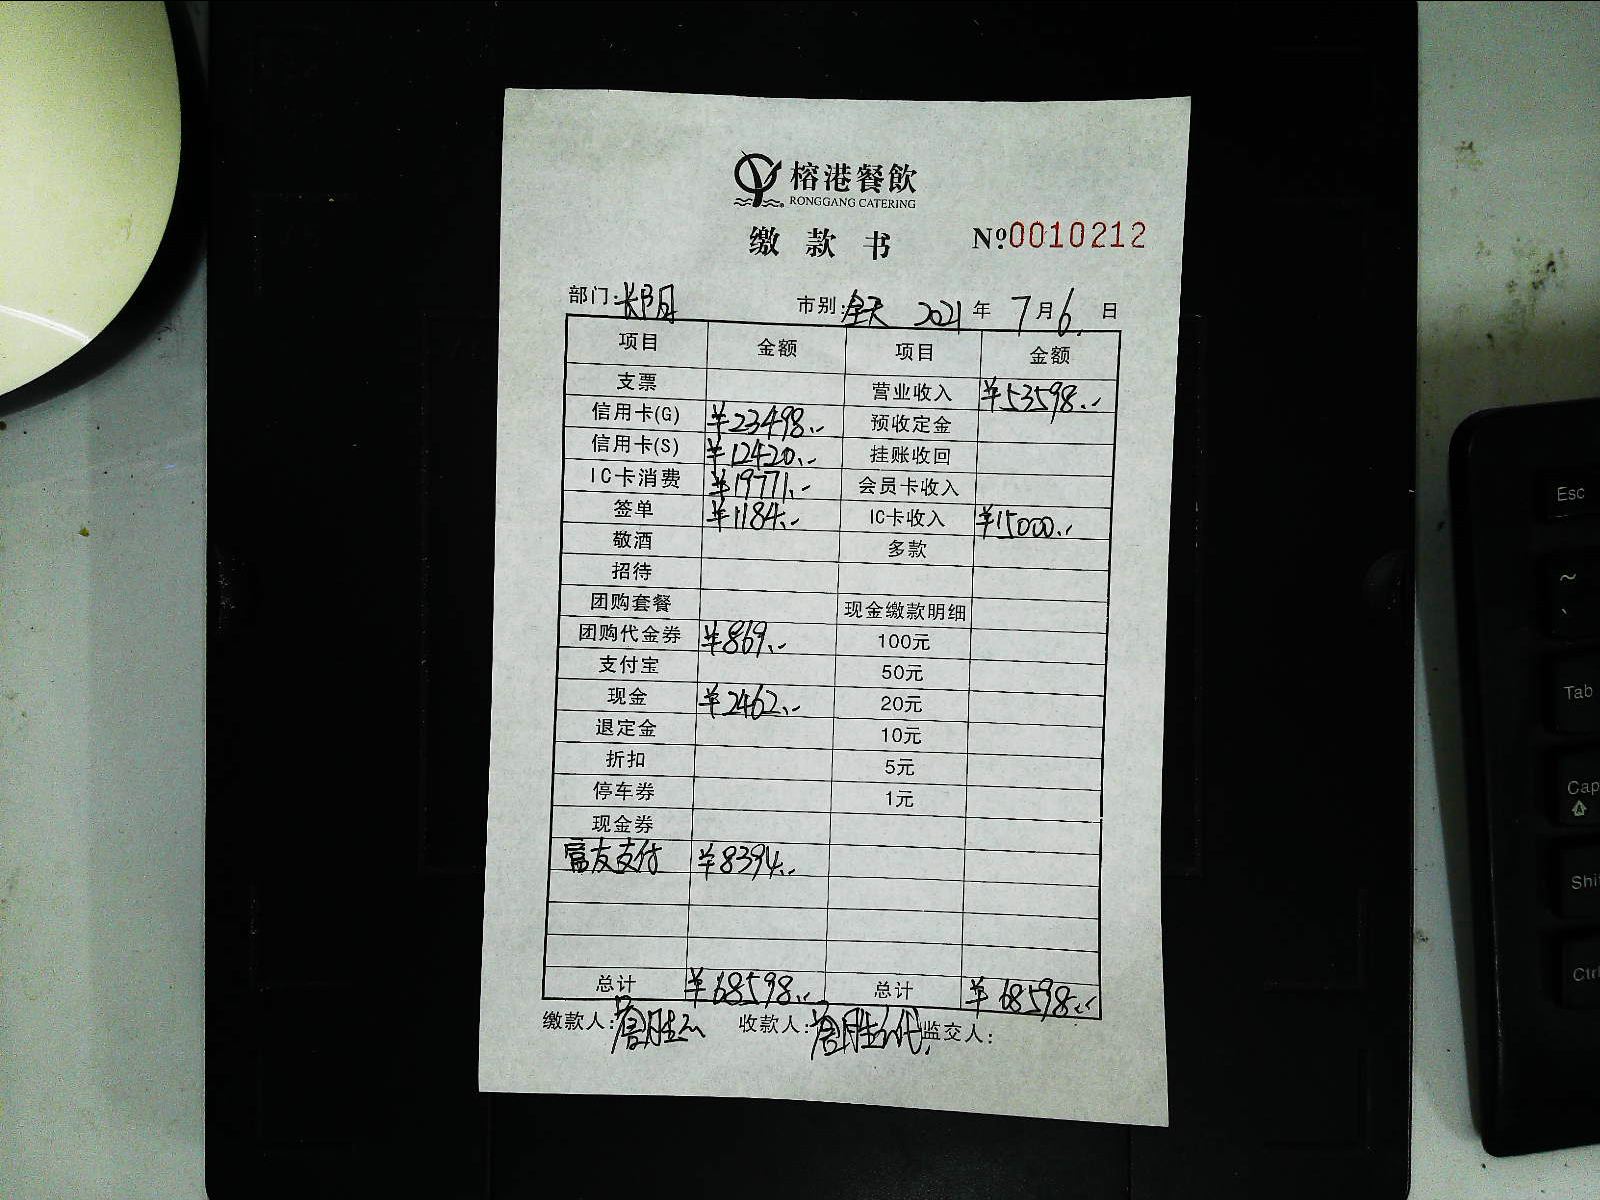 榕港餐飲
RONGGANG CATERING
缴款书 №0010212
部门: 市别:全天 2021年7月6日
项目 金额 项目 金额
支票 营业收入 ¥53598.-
信用卡(G) ¥23498.- 预收定金
信用卡(S) ¥12420.- 挂账收回
IC卡消费 ¥19771.- 会员卡收入
签单 ¥1184.- IC卡收入 ¥15000.-
敬酒 多款
招待
团购套餐 现金缴款明细
团购代金券 ¥869.- 100元
支付宝 50元
现金 ¥2462.- 20元
退定金 10元
折扣 5元
停车券 1元
现金券
富友支付 ¥8394.-
总计 ¥68598.- 总计 ¥68598.-
缴款人: 收款人: 监交人:
Esc
~
`
Tab
Cap
Shi
Ctrl